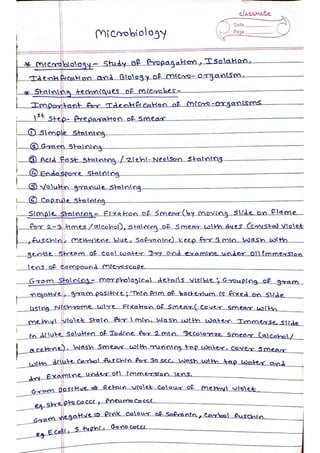 classmate
Date
Page
Microbiology
* Microbiology - Study of Propagation, Isolation,
Identification and Biology of micro-organism.
* Staining techniques of microbes-
Important for Identification of Micro-organisms
1st Step- Preparation of Smear
① Simple Staining
② Gram Staining
③ Acid Fast Staining / Ziehl-Neelson Staining
④ Endospore Staining
⑤ Volutin granule Staining
⑥ Capsule Staining
Simple Staining - Fixation of Smear (by moving slide on flame
for 2-3 times/alcohol), staining of Smear with dyes (Crystal violet
, fuschin, methylene blue, Safranine) keep for 1 min. Wash with
gentle stream of cool water. Dry and examine under oil immersion
lens of compound microscope
Gram Staining - morphological details visible; Grouping of gram
negative, gram positive; Thin film of bacterium is fixed on slide
using Nichrome wire. Fixation of Smear (cover smear with
methyl violet stain for 1 min. Wash with water. Immerse slide
in dilute solution of Iodine for 2 min. Decolorise Smear (alcohol/
acetone). Wash Smear with running tap water. cover smear
with dilute Carbol fuschin for 30 sec. wash with tap water and
dry. Examine under oil immersion lens.
Gram positive ⇒ Retain violet colour of methyl violet
eg. Streptococci, Pneumococci.
Gram negative ⇒ Pink colour of Safranin, carbol fuschin
eg E.coli, S. typhi, Gonococci